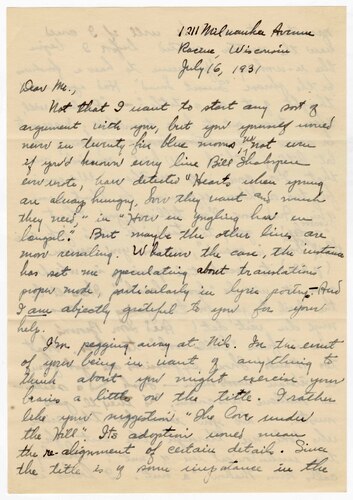 1211 Milwaukee Avenue
Racine, Wisconsin
July 16, 1931
Dear Mc.,
Not that I want to start any sort of
argument with you, but you yourself would
never in twenty-five blue moons, not even
if you'd known every line Bill Shakspere
ever wrote, have detected "Hearts when young
are always hungry, for they want and much
they need," in "How in yngling har en
." But maybe the other lines are
more revealing. Whatever the case, the instance
has set me speculating about translation
proper mode, particularly in lyric poetry. And
I am abjectly grateful to you for your
help.
I'm pegging away at Nib. In the event
of your being in want of anything to
think about you might exercise your
brains a little on the title. I rather
like your suggestion "The Cove under
the Hill". Its adoption would mean
the re-alignment of certain details. Since
the title is of some importance in the